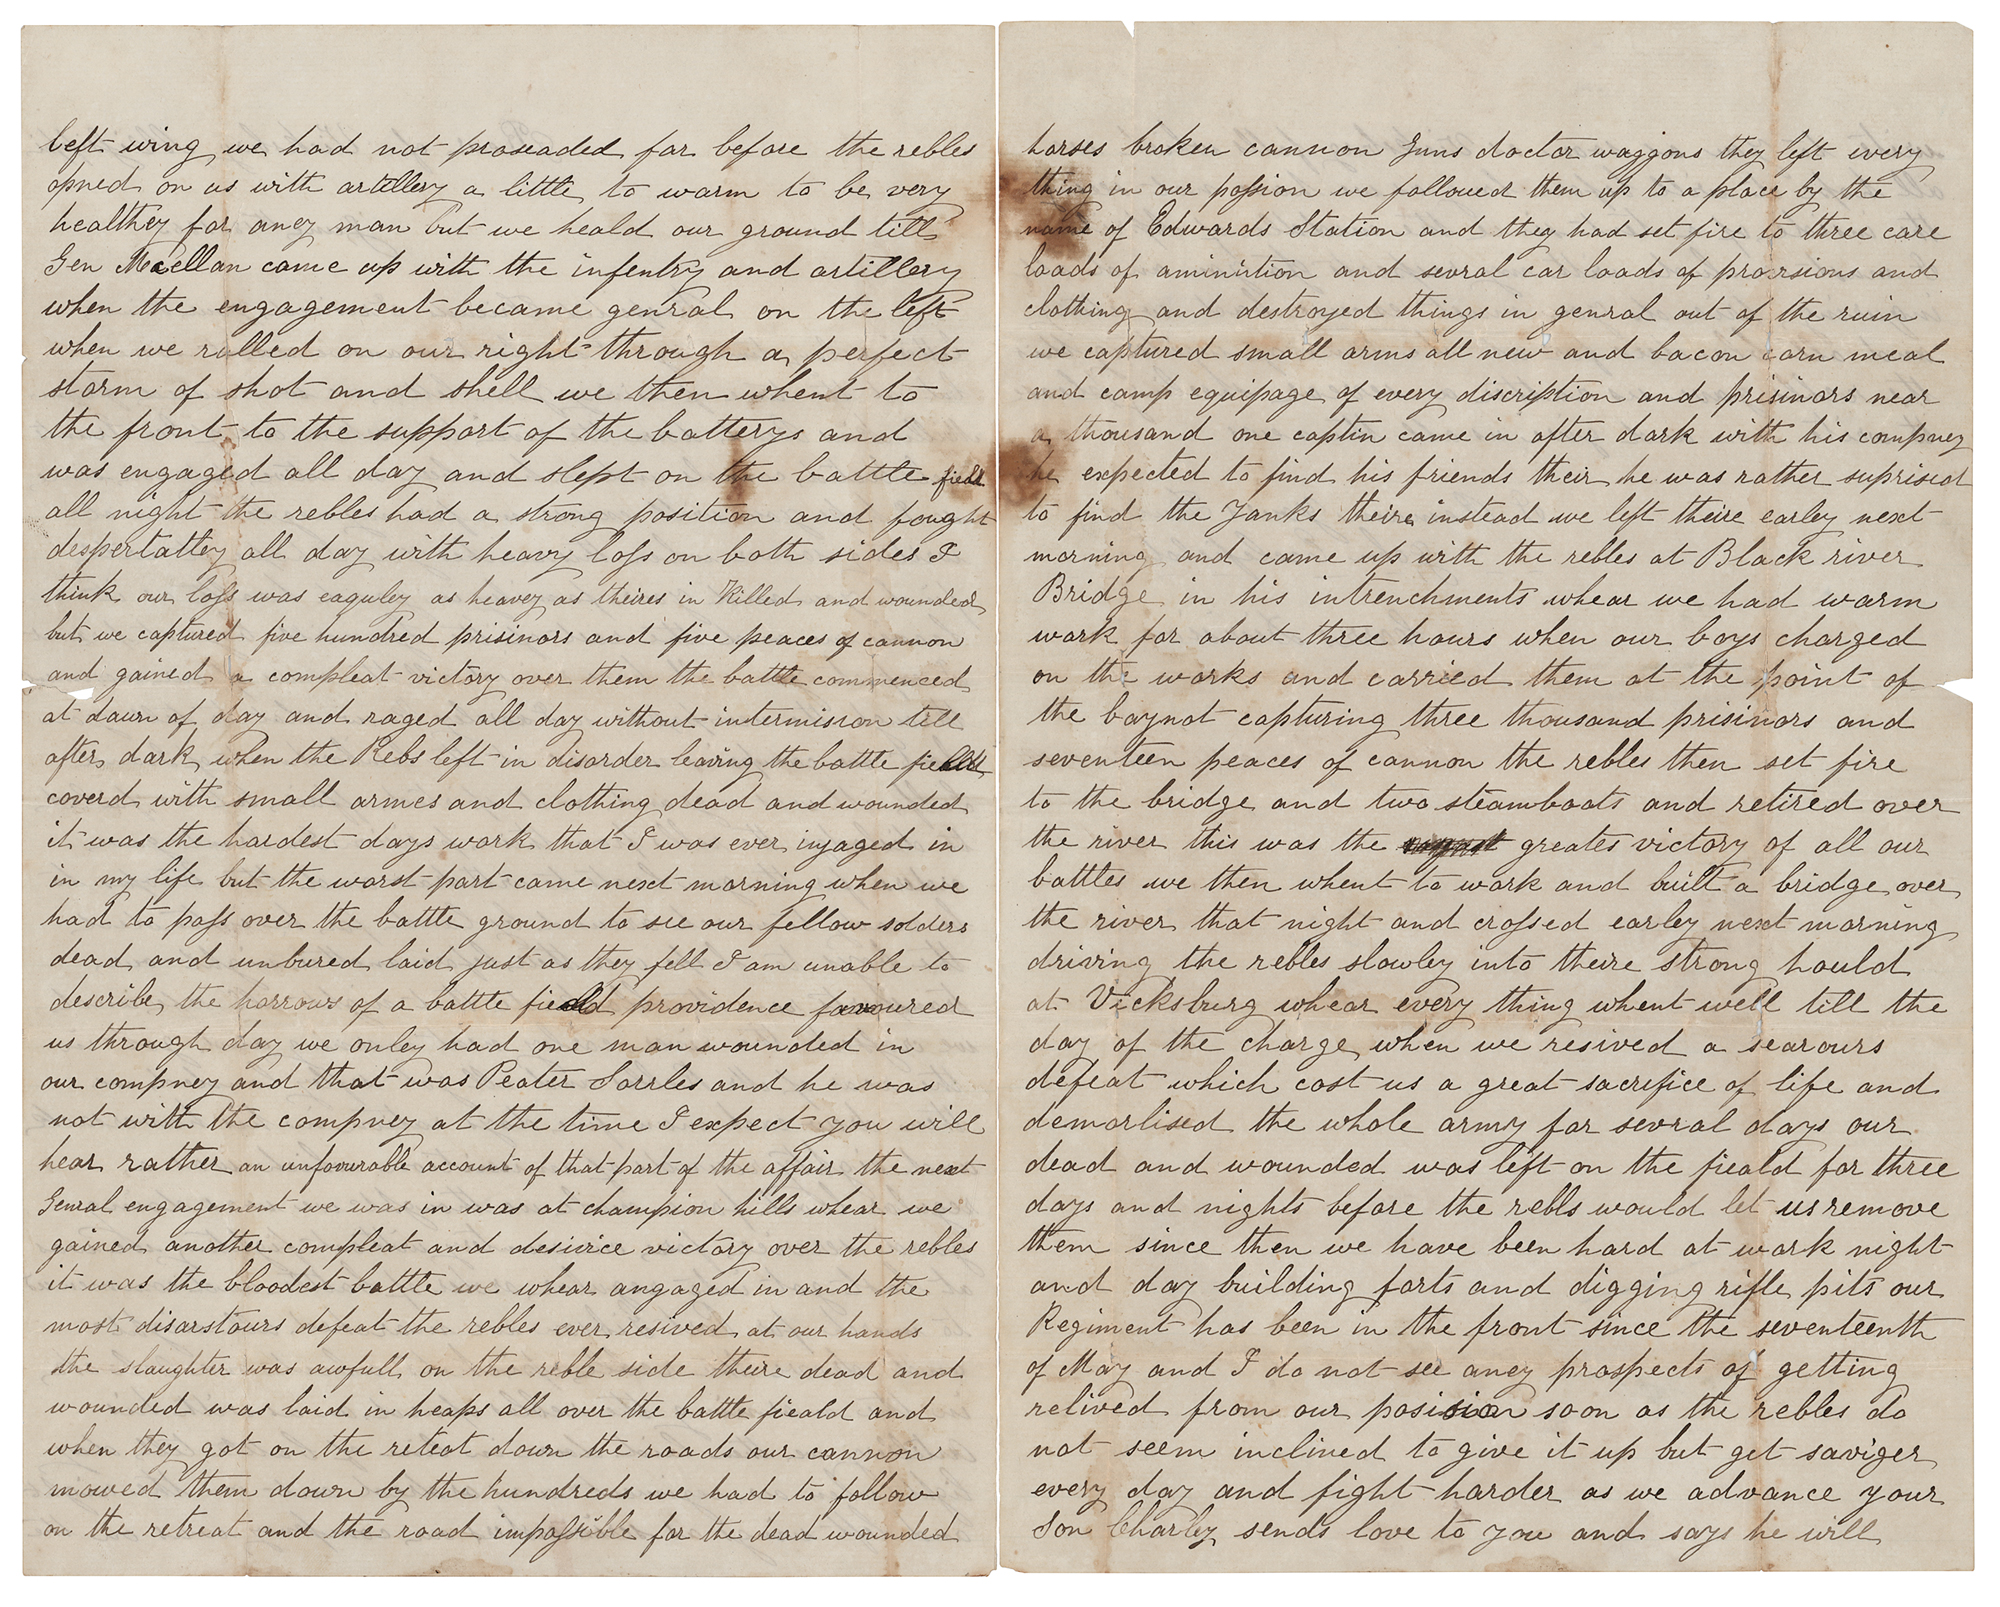 left wing we had not proseaded far before the rebles
opned on us with artillery a little to warm to be very
healthey for aney man but we heald our ground till
Gen Maclellan came up with the infentry and artillery
when the engagement became genral on the left
when we ralled on our right through a perfect
storm of shot and shell we then whent to
the front to the support of the batterys and
was engaged all day and slept on the battle field
all night the rebles had a strong position and fought
despertattey all day with heavy loss on both sides I
think our loss was eaguley as heavey as theires in Killed and wounded
but we captured five hundred prisinors and five peaces of cannon
and gained a compleat victory over them the battle commenced
at dawn of day and raged all day without intermission till
after dark when the Rebs left in disorder leaving the battle field
coverd with small armes and clothing dead and wounded
it was the hardest days work that I was ever ingaged in
in my life but the worst part came next morning when we
had to pass over the battle ground to see our fellow solders
dead and unbured laid just as they fell I am unable to
describe the horrows of a battle field providence favoured
us through day we onley had one man wounded in
our compney and that was Peater Sorrles and he was
not with the compney at the time I expect you will
hear rather an unfavourable account of that part of the affair the next
Genral engagement we was in was at champion hills whear we
gained another compleat and desivice victory over the rebles
it was the bloodest battle we whear angaged in and the
most disarstours defeat the rebles ever resived at our hands
the slaughter was awfull on the reble side theire dead and
wounded was laid in heaps all over the battle fieald and
when they got on the reteat down the roads our cannon
mowed them down by the hundreds we had to follow
on the retreat and the road impossible for the dead wounded
horses broken cannon Guns doctor waggons they left every
thing in our possion we followed them up to a place by the
name of Edwards Station and they had set fire to three care
loads of aminirtion and sevral car loads of provisions and
clothing and destroyed things in genral out of the ruin
we captured small arms all new and bacon corn meal
and camp equipage of every discription and prisinors near
a thousand one captin came in after dark with his compney
he expected to find his friends their he was rather suprised
to find the Yanks theire instead we left theire earley next
morning and came up with the rebles at Black river
Bridge in his intrenchments whear we had warm
work for about three hours when our boys charged
on the works and carried them at the point of
the baynot capturing three thousand prisinors and
seventeen peaces of cannon the rebles then set fire
to the bridge and two steamboats and retired over
the river this was the greates victory of all our
battles we then whent to work and built a bridge over
the river that night and crossed earley next morning
driving the rebles slowley into theire strong hould
at Vicksburg whear every thing whent well till the
day of the charge when we resived a searours
defeat which cost us a great sacrifice of life and
demorlised the whole army for sevral days our
dead and wounded was left on the fieald for three
days and nights before the rebls would let us remove
them since then we have been hard at work night
and day building forts and digging rifle pits our
Regiment has been in the front since the seventeenth
of May and I do not see aney prospects of getting
relived from our posision soon as the rebles do
not seem inclined to give it up but get saviger
every day and fight harder as we advance your
Son Charley sends love to you and says he will